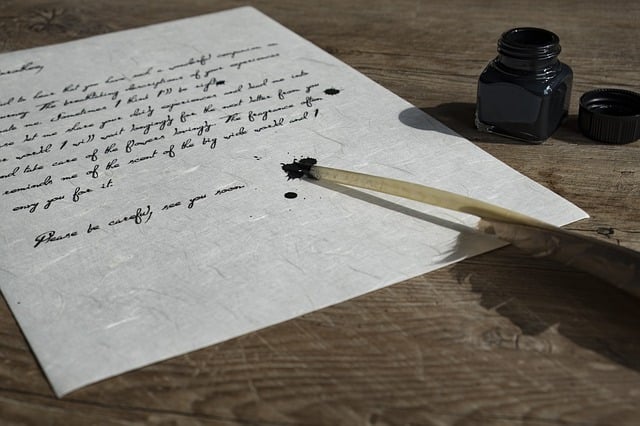 to hear that you have such a wonderful companion on
The breathtaking descriptions of your experiences
me. Sometimes I think I'll be right
but we share your daily experiences and lead me into
world I will wait longingly for the next letter from you
and take care of the flowers lovingly. The fragrance of
reminds me of the scent of the big wide world and I
envy you for it.
Please be careful, see you soon